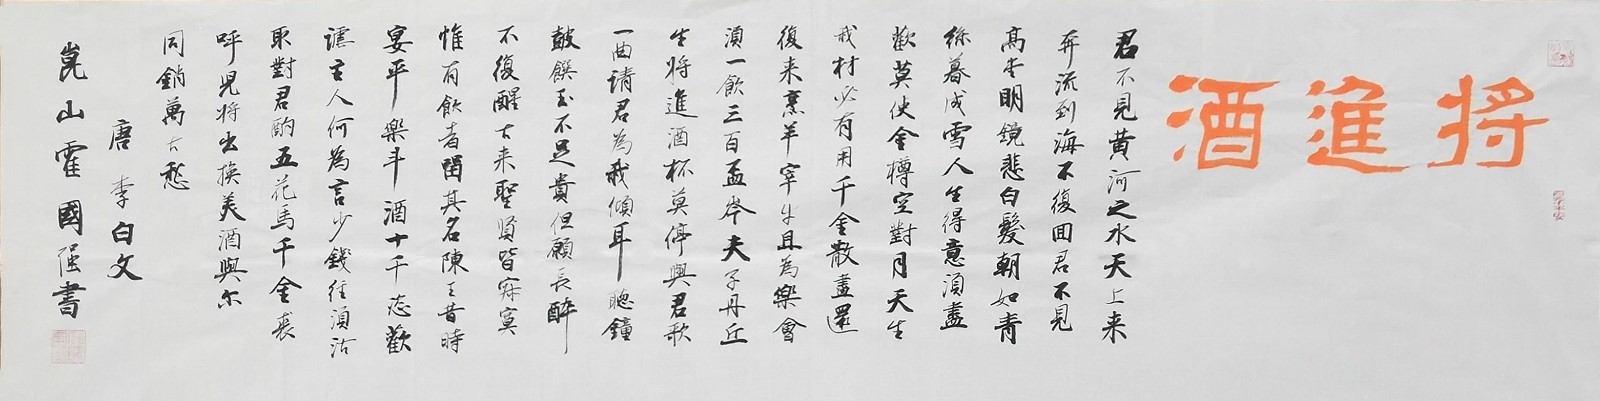 将進酒
君不見黄河之水天上来
奔流到海不復回君不見
高堂明鏡悲白髮朝如青
絲暮成雪人生得意須盡
歡莫使金樽空對月天生
我材必有用千金散盡還
復来烹羊宰牛且為樂會
須一飲三百盃岑夫子丹丘
生将進酒杯莫停與君歌
一曲請君為我傾耳聽鐘
鼓饌玉不足貴但願長醉
不復醒古来聖賢皆寂寞
惟有飲者留其名陳王昔時
宴平樂斗酒十千恣歡
謔主人何為言少錢徑須沽
取對君酌五花馬千金裘
呼兒将出換美酒與尔
同銷萬古愁
唐 李白文
崑山霍國强書